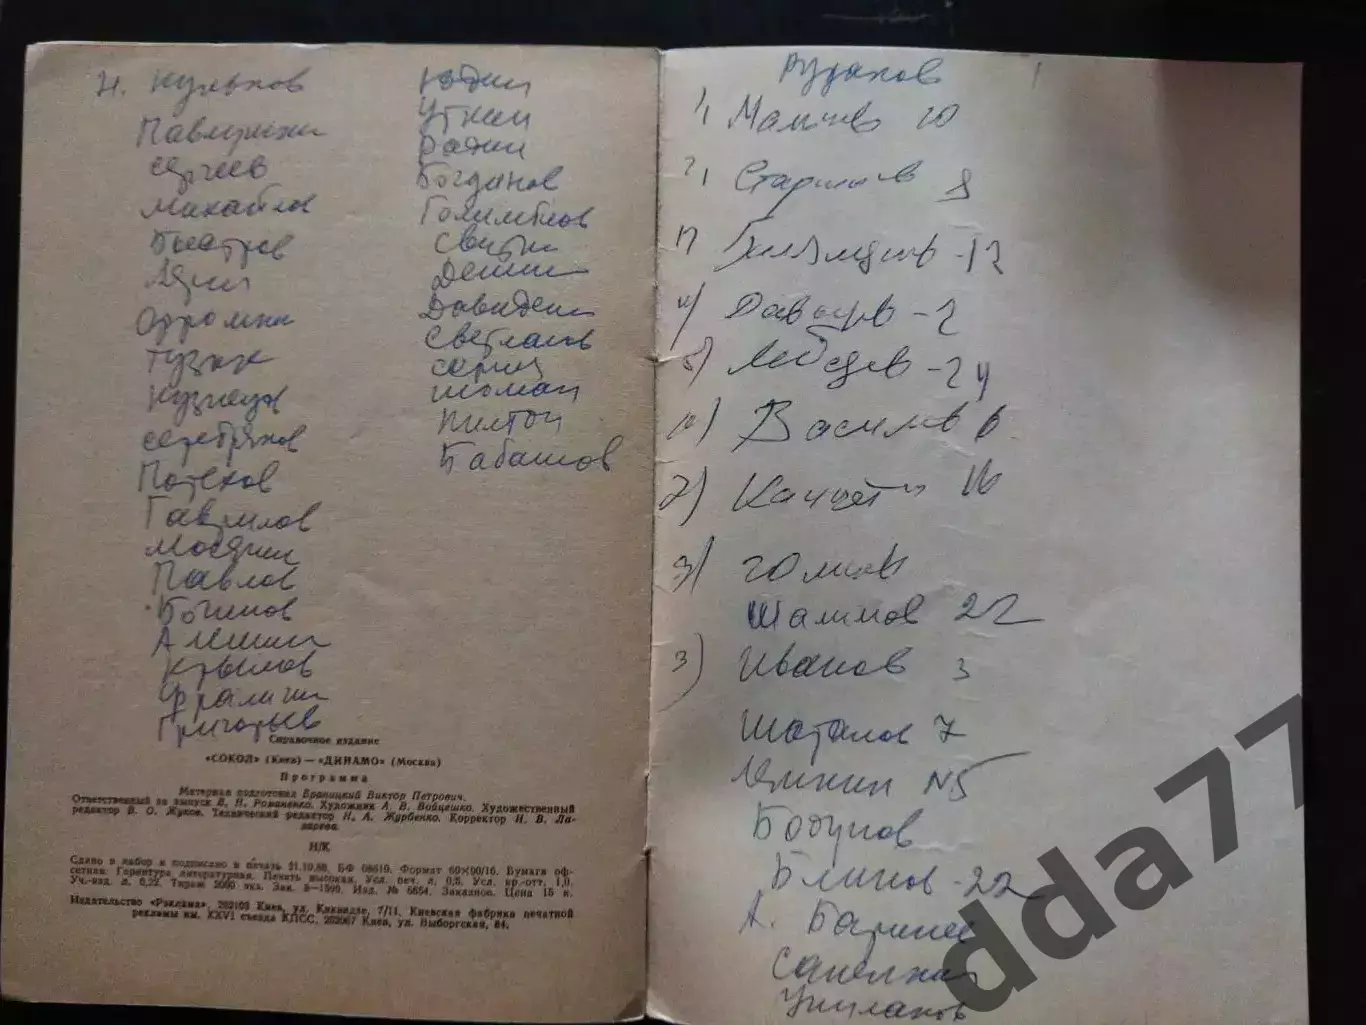 Н. Кульков
Павлушкин
Сергеев
Михайлов
Быстров
Ляпин
Фроликов
Тузик
Кузнецов
Серебряков
Потехов
Гаврилов
Мосягин
Павлов
Богинов
Алешин
Крылов
Фралкин
Григорьев
Юдин
Уткин
Радин
Богданов
Голимбиов
Свитин
Демин
Давидкин
Светлаков
Шоман
Пилтон
Бабашов
Справочное издание
«СОКОЛ» (Киев) — «ДИНАМО» (Москва)
Программа
Материал подготовил Браницкий Виктор Петрович.
Ответственный за выпуск В. Н. Романенко. Художник А. В. Войцешко. Художественный
редактор В. О. Жуков. Технический редактор Н. А. Журбенко. Корректор Н. В. Ла-
зарева.
Н/К
Сдано в набор и подписано в печать 21.10.88. БФ 08619. Формат 60×90/16. Бумага оф-
сетная. Гарнитура литературная. Печать высокая. Усл. печ. л. 0,5. Усл. кр.-отт. 1,0.
Уч.-изд. л. 0,22. Тираж 2000 экз. Зак. 8—1999. Изд. № 6654. Заказное. Цена 15 к.
Издательство «Реклама», 252103 Киев, ул. Киквидзе, 7/11. Киевская фабрика печатной
рекламы им. XXVI съезда КПСС, 252067 Киев, ул. Выборгская, 84.
Рудаков
Мальцев 10
2) Старшинов 8
Билялединов - 12
4) Давыдов - 2
5) Лебедев - 24
Васильев 6
7) 16
Голиков
Шалимов 22
3) Иванов 3
Шаталов 7
Лямкин N5
Бодунов
Блинов - 22
А. Баринев
Сапелкин
Умулаков
dda77